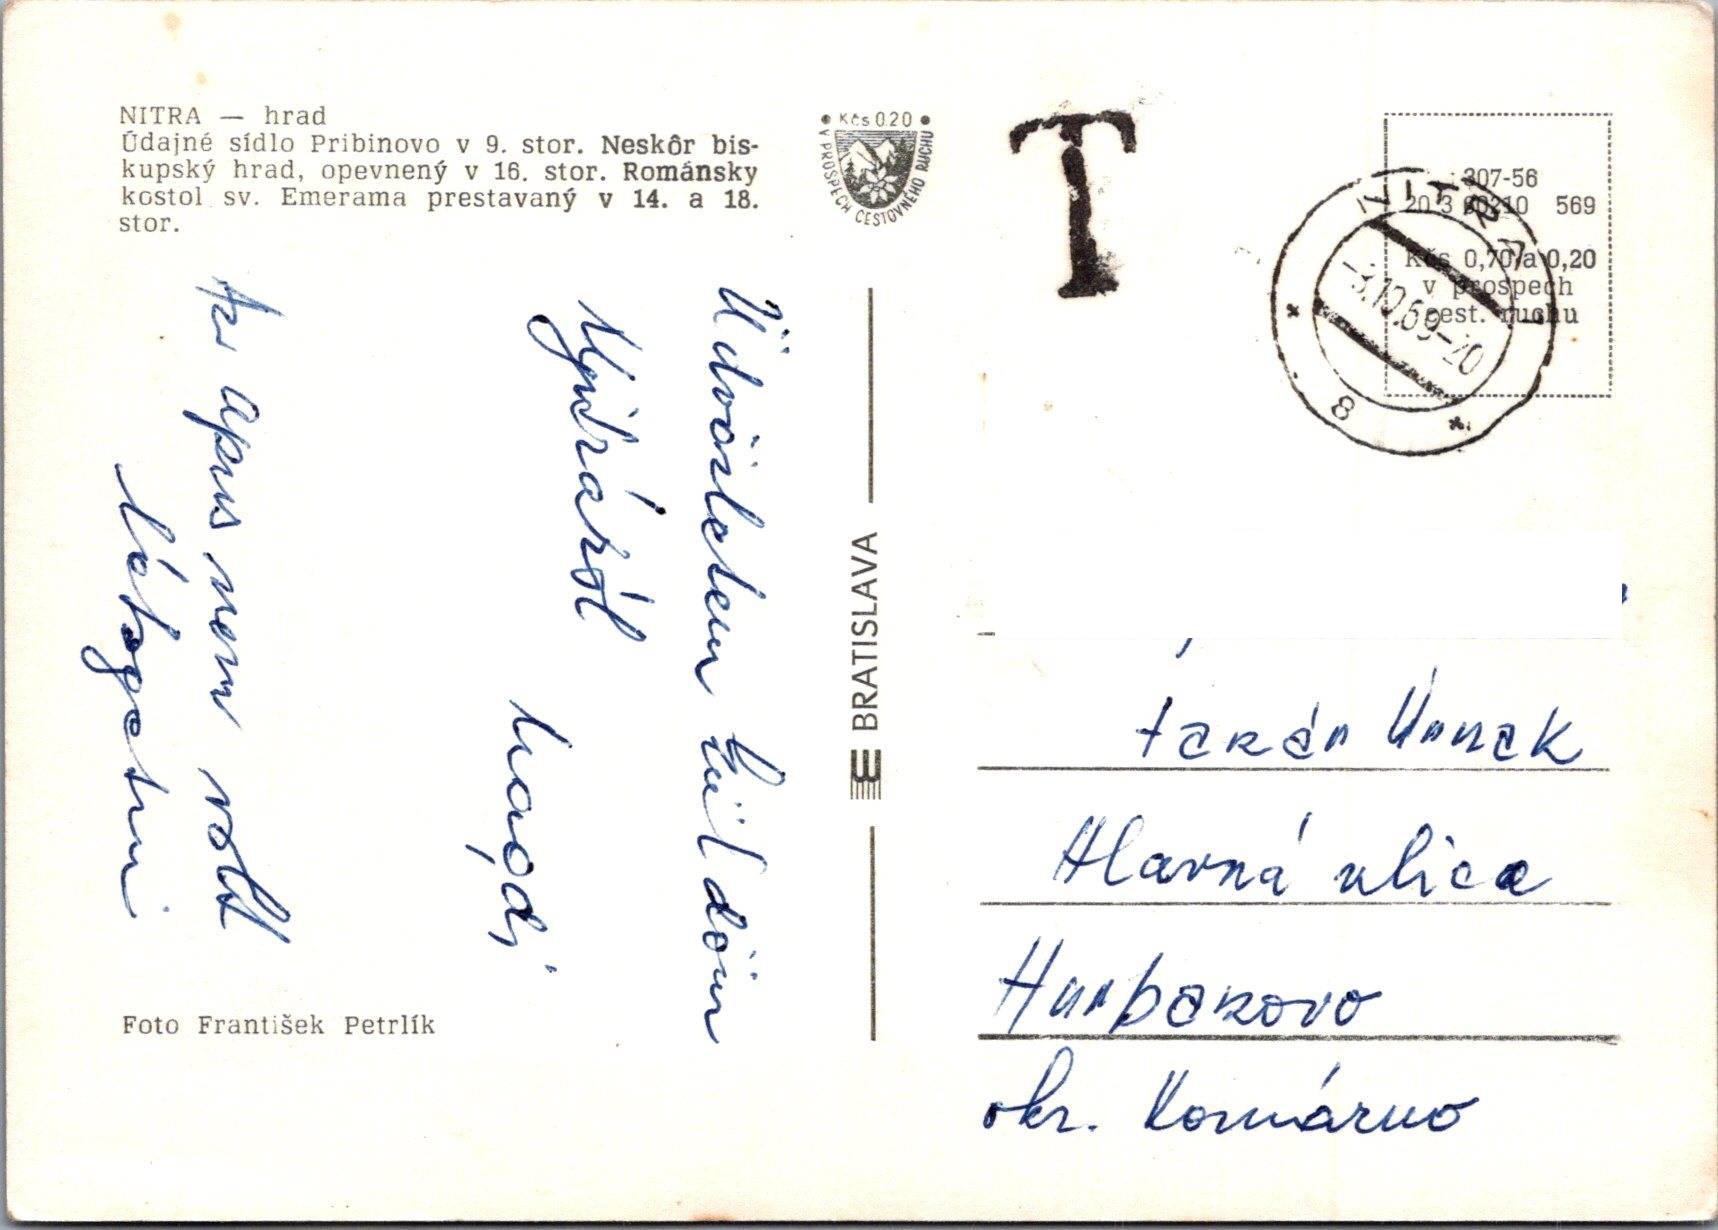 NITRA — hrad
Údajné sídlo Pribinovo v 9. stor. Neskôr bis-
kupský hrad, opevnený v 16. stor. Románsky
kostol sv. Emerama prestavaný v 14. a 18.
stor.
• Kčs 0.20 •
V PROSPECH CESTOVNÉHO RUCHU
T
307-56
20 3 60210 569
Kčs 0,70/a 0,20
v prospech
cest. ruchu
NITRA 1
-3.10.69-20
8
Üdvözletem küldöm
Nyitráról
Az apus nem volt
látogatni
BRATISLAVA
Hlavná ulica
Hurbanovo
okr. Komárno
Foto František Petrlík